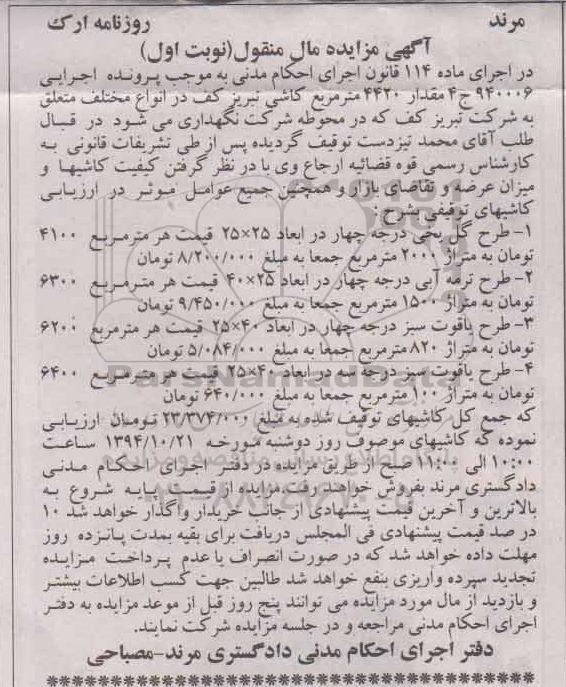 مرند
روزنامه ارک
آگهی مزایده مال منقول(نوبت اول)
در اجرای ماده ۱۱۴ قانون اجرای احکام مدنی به موجب پرونده اجرایی
۹۴۰۰۰۶ ج۴ مقدار ۴۴۲۰ مترمربع کاشی تبریز کف در انواع مختلف متعلق
به شرکت تبریز کف که در محوطه شرکت نگهداری می شود در قبال
طلب آقای محمد تیزدست توقیف گردیده پس از طی تشریفات قانونی به
کارشناس رسمی قوه قضائیه ارجاع وی با در نظر گرفتن کیفیت کاشیها و
میزان عرضه و تقاضای بازار و همچنین جمیع عوامل موثر در ارزیابی
کاشیهای توقیفی بشرح :
۱- طرح گل یخی درجه چهار در ابعاد ۲۵×۲۵ قیمت هر مترمربع ۴۱۰۰
تومان به متراژ ۲۰۰۰ مترمربع جمعا به مبلغ ۸/۲۰۰/۰۰۰ تومان
۲- طرح ترمه آبی درجه چهار در ابعاد ۲۵×۴۰ قیمت هر مترمربع ۶۳۰۰
تومان به متراژ ۱۵۰۰ مترمربع جمعا به مبلغ ۹/۴۵۰/۰۰۰ تومان
۳- طرح یاقوت سبز درجه چهار در ابعاد ۴۰×۲۵ قیمت هر مترمربع ۶۲۰۰
تومان به متراژ ۸۲۰ مترمربع جمعا به مبلغ ۵/۰۸۴/۰۰۰ تومان
۴- طرح یاقوت سبز درجه سه در ابعاد ۴۰×۲۵ قیمت هر مترمربع ۶۴۰۰
تومان به متراژ ۱۰۰ مترمربع جمعا به مبلغ ۶۴۰/۰۰۰ تومان
که جمع کل کاشیهای توقیف شده به مبلغ ۲۳/۳۷۴/۰۰۰ تومان ارزیابی
نموده که کاشیهای موصوف روز دوشنبه مورخه ۱۳۹۴/۱۰/۲۱ ساعت
۱۰:۰۰ الی ۱۱:۰۰ صبح از طریق مزایده در دفتر اجرای احکام مدنی
دادگستری مرند بفروش خواهند رفت مزایده از قیمت پایه شروع به
بالاترین و آخرین قیمت پیشنهادی از جانب خریدار واگذار خواهد شد ۱۰
در صد قیمت پیشنهادی فی المجلس دریافت برای بقیه بمدت پانزده روز
مهلت داده خواهد شد که در صورت انصراف یا عدم پرداخت مزایده
تجدید سپرده واریزی بنفع خواهد شد طالبین جهت کسب اطلاعات بیشتر
و بازدید از مال مورد مزایده می توانند پنج روز قبل از موعد مزایده به دفتر
اجرای احکام مدنی مراجعه و در جلسه مزایده شرکت نمایند.
دفتر اجرای احکام مدنی دادگستری مرند-مصباحی
ParsNamadData